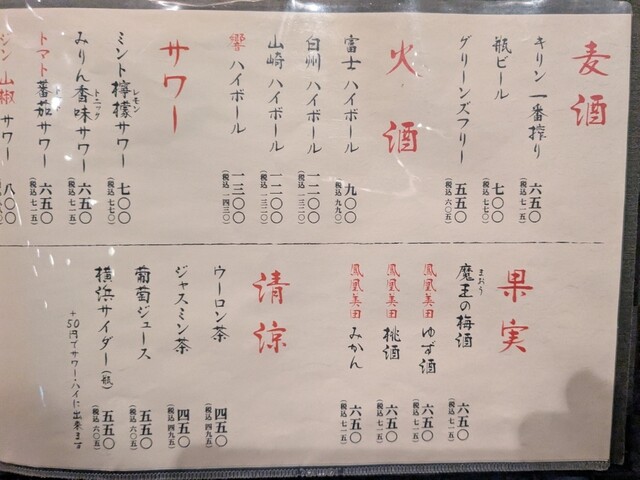 麦酒
キリン一番搾り 六五〇
(税込 七一五)
瓶ビール 七〇〇
(税込 七七〇)
グリーンズフリー 五五〇
(税込 六〇五)
火酒
富士ハイボール 九〇〇
(税込 九九〇)
白州ハイボール 一二〇〇
(税込 一三二〇)
山崎ハイボール 一二〇〇
(税込 一三二〇)
響ハイボール 一三〇〇
(税込 一四三〇)
サワー
ミント檸檬サワー 七〇〇
レモン
(税込 七七〇)
みりん香味サワー 六五〇
トニック
(税込 七一五)
トマト蕃茄サワー 六五〇
(税込 七一五)
ジン山椒サワー 八〇〇
果実
魔王の梅酒 六五〇
まおう
(税込 七一五)
鳳凰美田 ゆず酒 六五〇
(税込 七一五)
鳳凰美田 桃酒 六五〇
(税込 七一五)
鳳凰美田 みかん 六五〇
(税込 七一五)
清涼
ウーロン茶 四五〇
(税込 四九五)
ジャスミン茶 四五〇
(税込 四九五)
葡萄ジュース 五五〇
(税込 六〇五)
横浜サイダー(瓶) 五五〇
(税込 六〇五)
+50円でサワー・ハイに出来ます